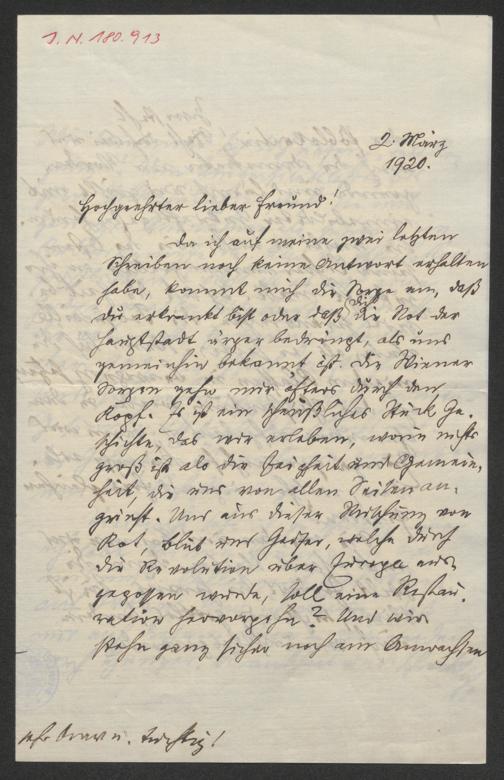 I. N. 180.913
2. März
1920.
Hochgeehrter lieber Freund!
Da ich auf meine zwei letzten
Schreiben noch keine Antwort erhalten
habe, kommt mich die Sorge an, daß
du erkrankt bist oder daß dich die Not der
Hauptstadt ärger bedrängt, als uns
gemeinhin bekannt ist. Die Wiener
Sorgen gehn mir öfters durch den
Kopf. Es ist ein scheußliches Stück Ge-
schichte, das wir erleben, worin nichts
groß ist als die Feigheit und Gemein-
heit, die uns von allen Seiten an-
grinst. Und aus dieser Mischung von
Kot, Blut und Geifer, welche durch
die Revolution über Europa aus-
gegossen wurde, soll eine Restau-
ration hervorgehn? Und wir
stehn ganz sicher noch am Anwachsen
sehr brav u. tüchtig!